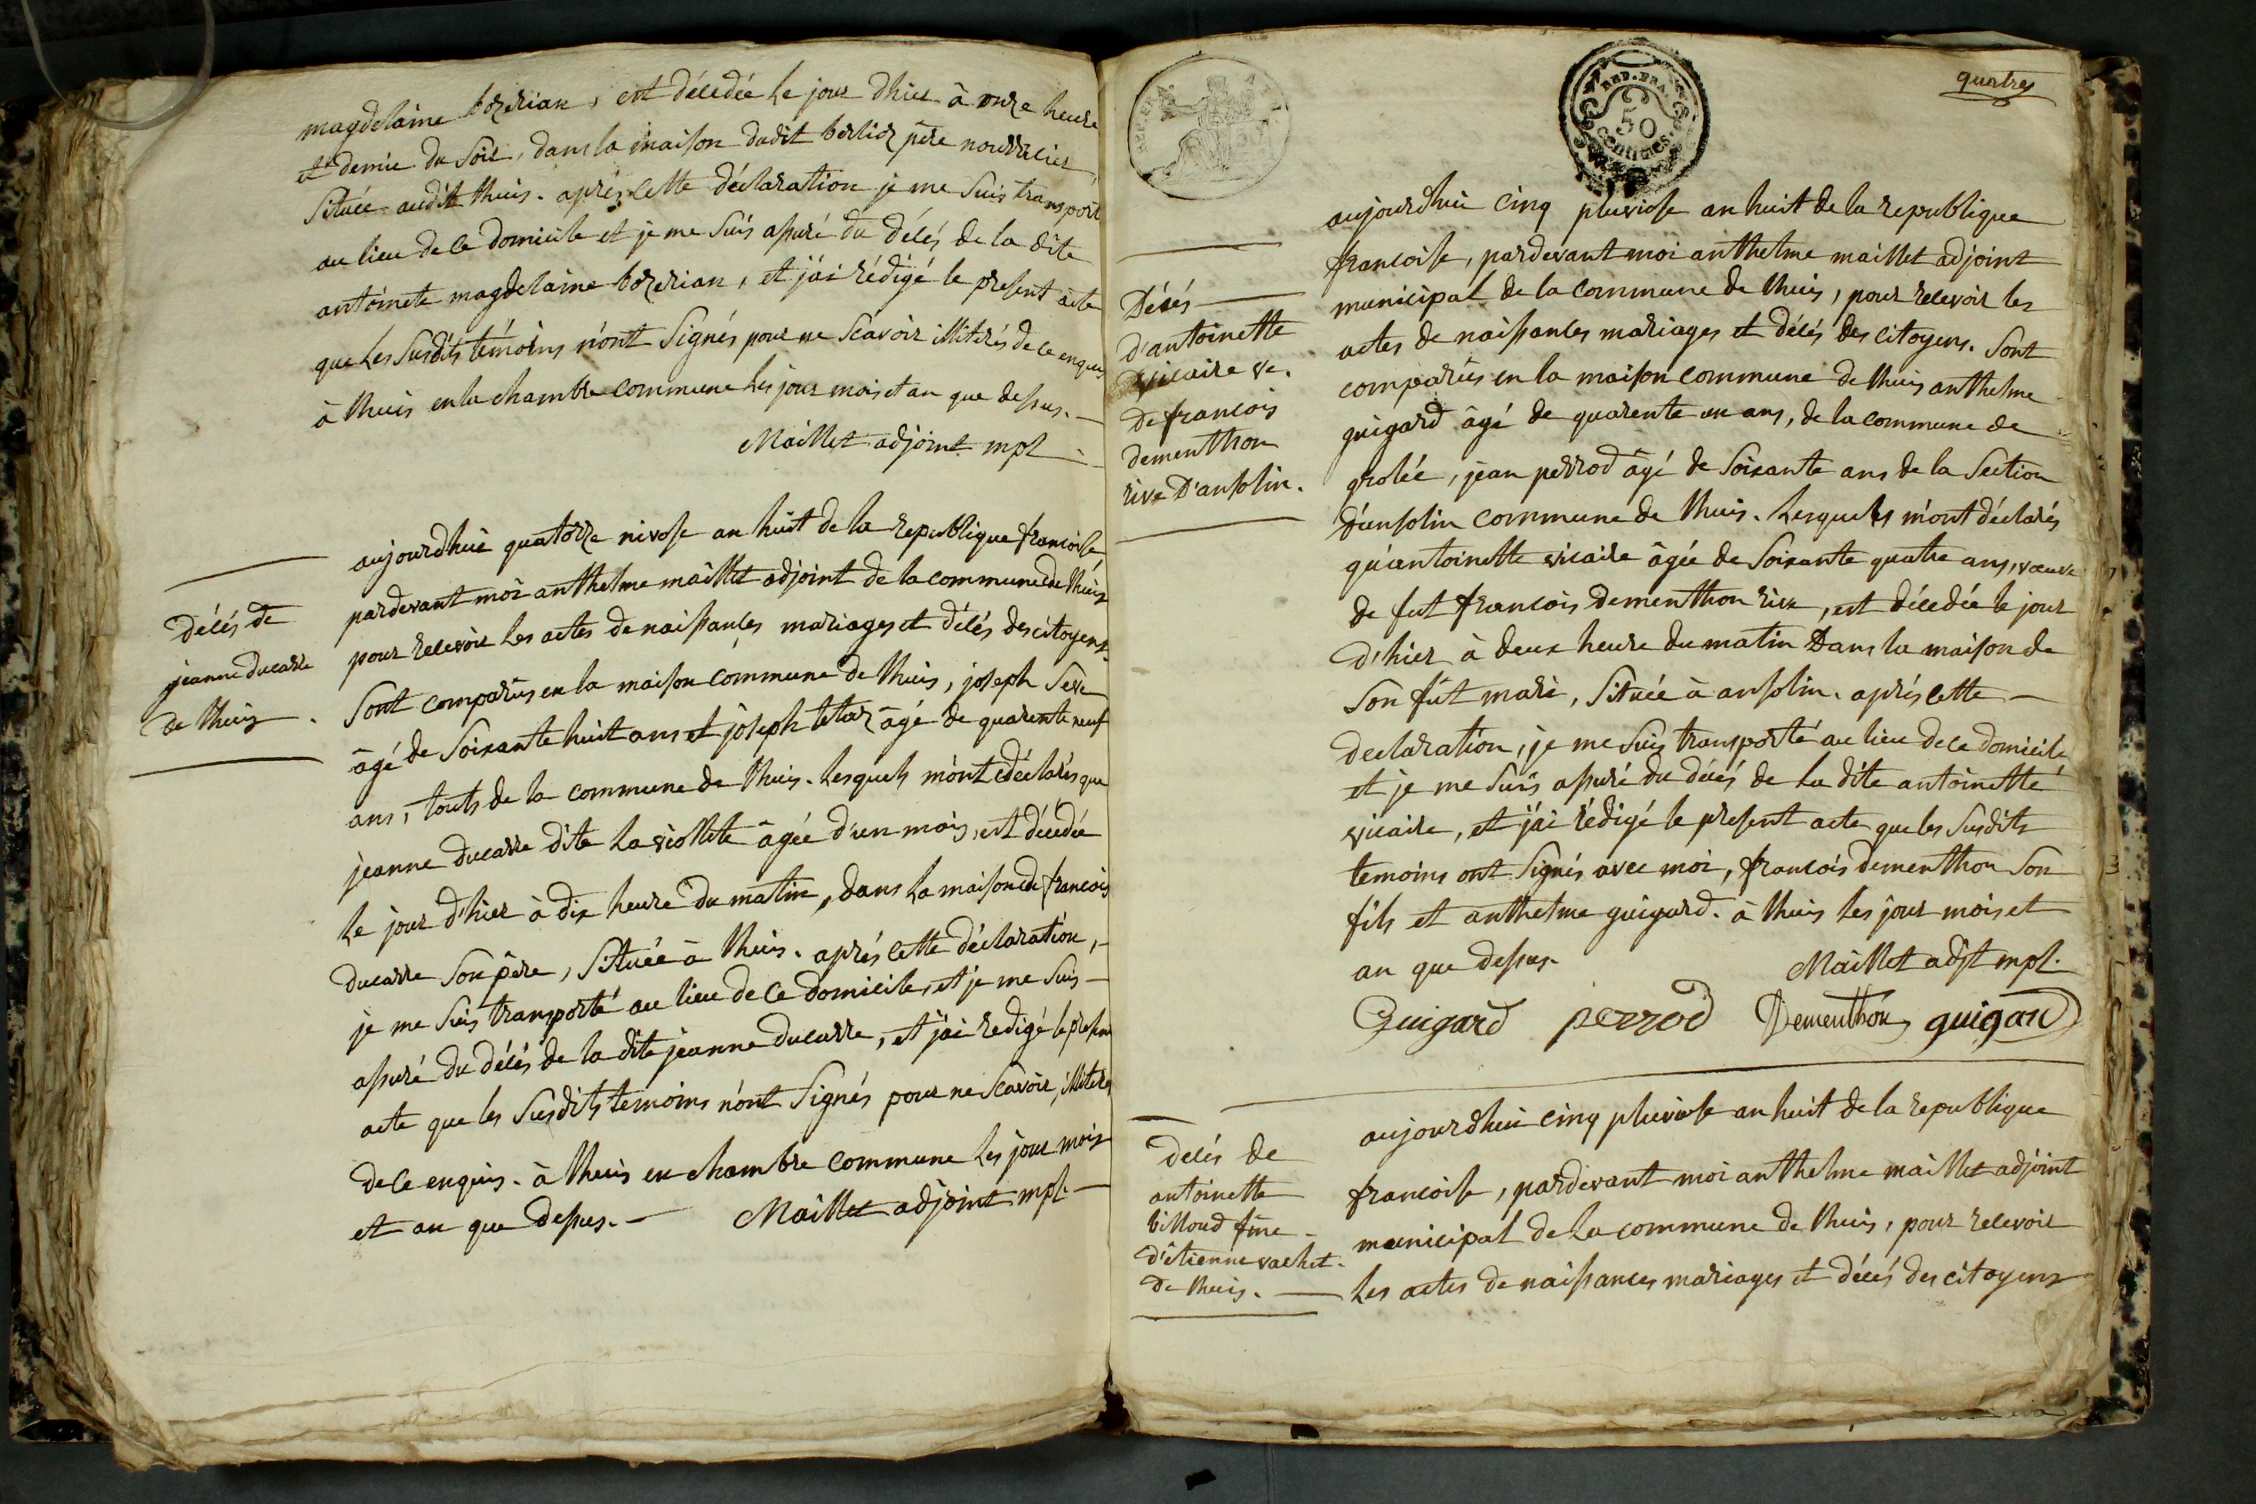 magdelaine bozerian, est décédée le jour dhier à onze heure
et demie du soir, dans la maison dudit berlioz père nourricier,
située audit thuis. après cette déclaration je me suis transporté
au lieu de ce domicile et je me suis assuré du décés de la dite
antoinete magdelaine bozerian, et j'ai rédigé le present acte
que les susdits témoins n'ont signés pour ne scavoir illitérés de ce enquis
à thuis en la chambre commune les jour mois et an que dessus. —
Maillet adjoint mpl
aujourdhui quatorze nivose an huit de la republique francoise
pardevant moi anthelme maillet adjoint de la commune de thuis
pour recevoir les actes de naissances mariages et décés des citoyens.
décés de
jeanne ducarre
de thuis.
sont comparus en la maison commune de thuis, joseph serre
âgé de soixante huit ans et joseph tetaz âgé de quarente neuf
ans, touts de la commune de thuis. lesquels m'ont déclarés que
jeanne ducarre dite la viollete âgée d'un mois, est décédée
le jour d'hier à dix heure du matin, dans la maison de francois
ducarre son père, située à thuis. aprés cette déclaration, —
je me suis transporté au lieu de ce domicile, et je me suis —
assuré du décés de la dite jeanne ducarre, et j'ai redigé le present
acte que les susdits temoins n'ont signés pour ne scavoir, illiterés
de ce enquis. à thuis en chambre commune les jour mois
et an que dessus. — Maillet adjoint mpl. —
REP. FRA.
REP. FRA.
50
centimes.
quatres
aujourdhui cinq pluviose an huit de la republique
francoise, pardevant moi anthelme maillet adjoint
municipal de la commune de thuis, pour recevoir les
actes de naissances mariages et décés des citoyens. sont
comparûs en la maison commune de thuis anthelme
guigard âgé de quarente un ans, de la commune de
grolée, jean perrod âgé de soixante ans de la section
d'ansolin commune de thuis. lesquels m'ont déclarés
qu'antoinette vicaire âgée de soixante quatre ans, vœuve
de fut francois dementhon rive, est décedée le jour
d'hier à deux heure du matin Dans la maison de
son fût mari, située à ansolin. aprés cette —
declaration, je me suis transporté au lieu de ce domicile
et je me suis assuré du décés de la dite antoinette
vicaire, et j'ai rédigé le present acte que les susdits
temoins ont signés avec moi, francois dementhon son
fils et anthelme guigard. à thuis les jour mois et
an que dessus. Maillet adjt mpl.
Guigard perrod Dementhon guigard
Décés —
d'antoinette
vicaire ve.
de francois
dementhon
rive D'ansolin.
aujourdhui cinq pluviose an huit de la republique
francoise, pardevant moi anthelme maillet adjoint
municipal de la commune de thuis, pour recevoir
les actes de naissances mariages et décés des citoyens
decés de
antoinette
billoud fme
d'étienne vachet.
de thuis. —